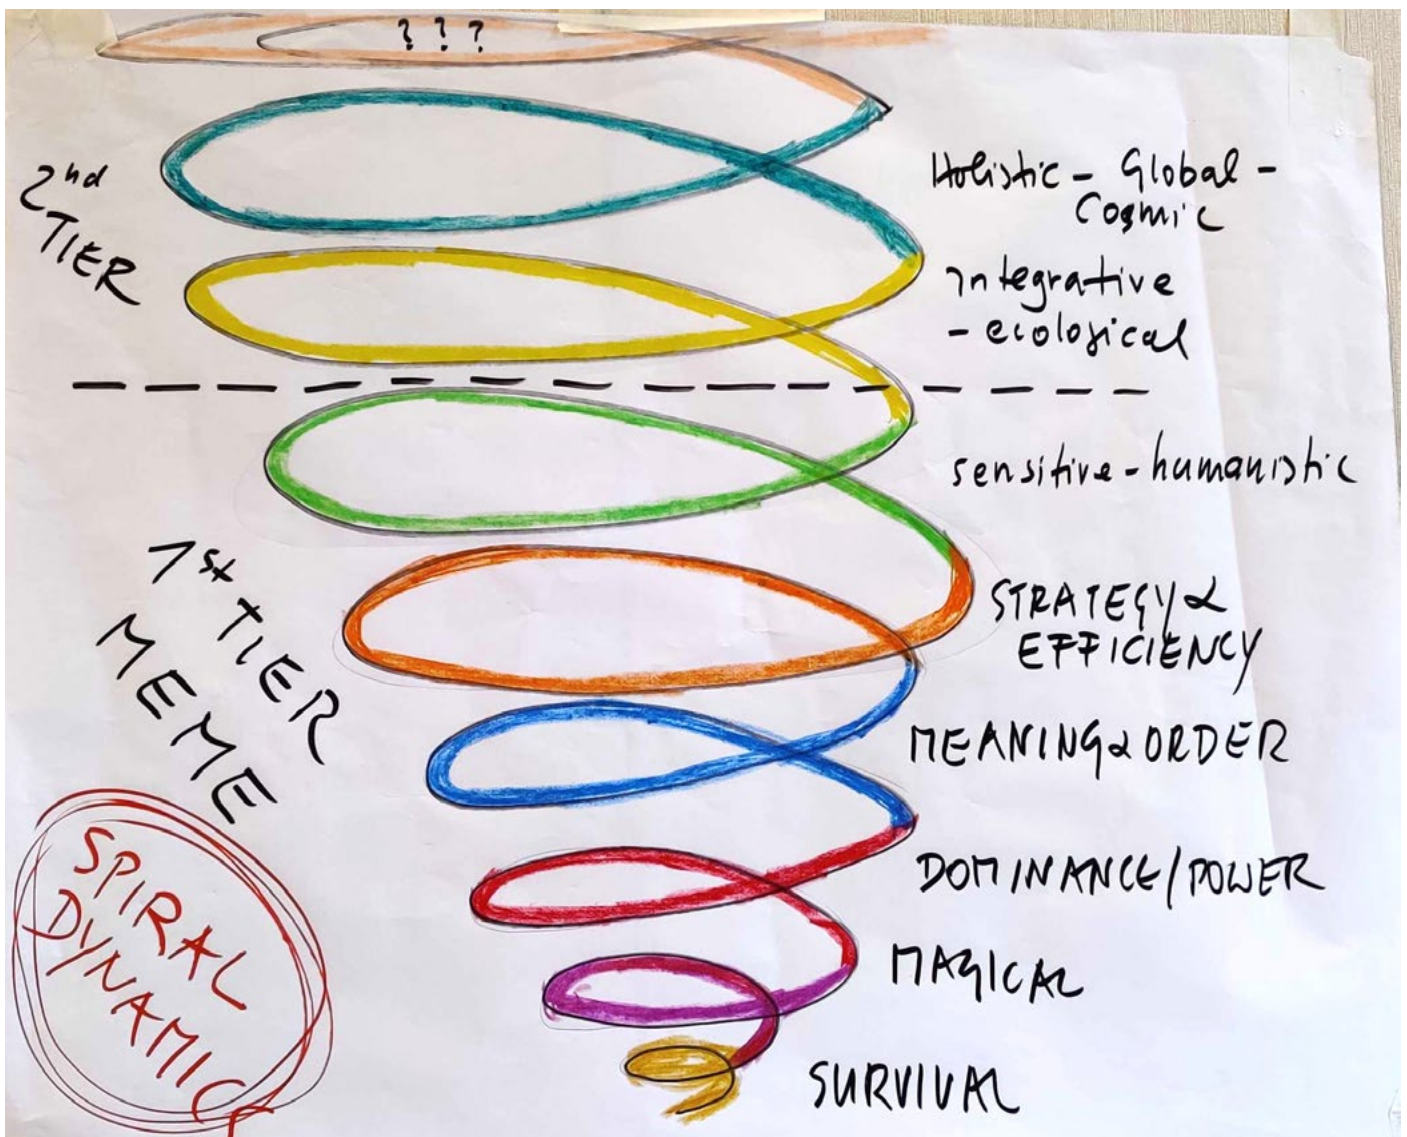 ? ? ?
2nd
TIER
Holistic - Global -
Cosmic
integrative
- ecological
sensitive-humanistic
1st TIER
MEME
STRATEGY &
EFFICIENCY
MEANING & ORDER
DOMINANCE/POWER
MAGICAL
SURVIVAL
SPIRAL
DYNAMIC